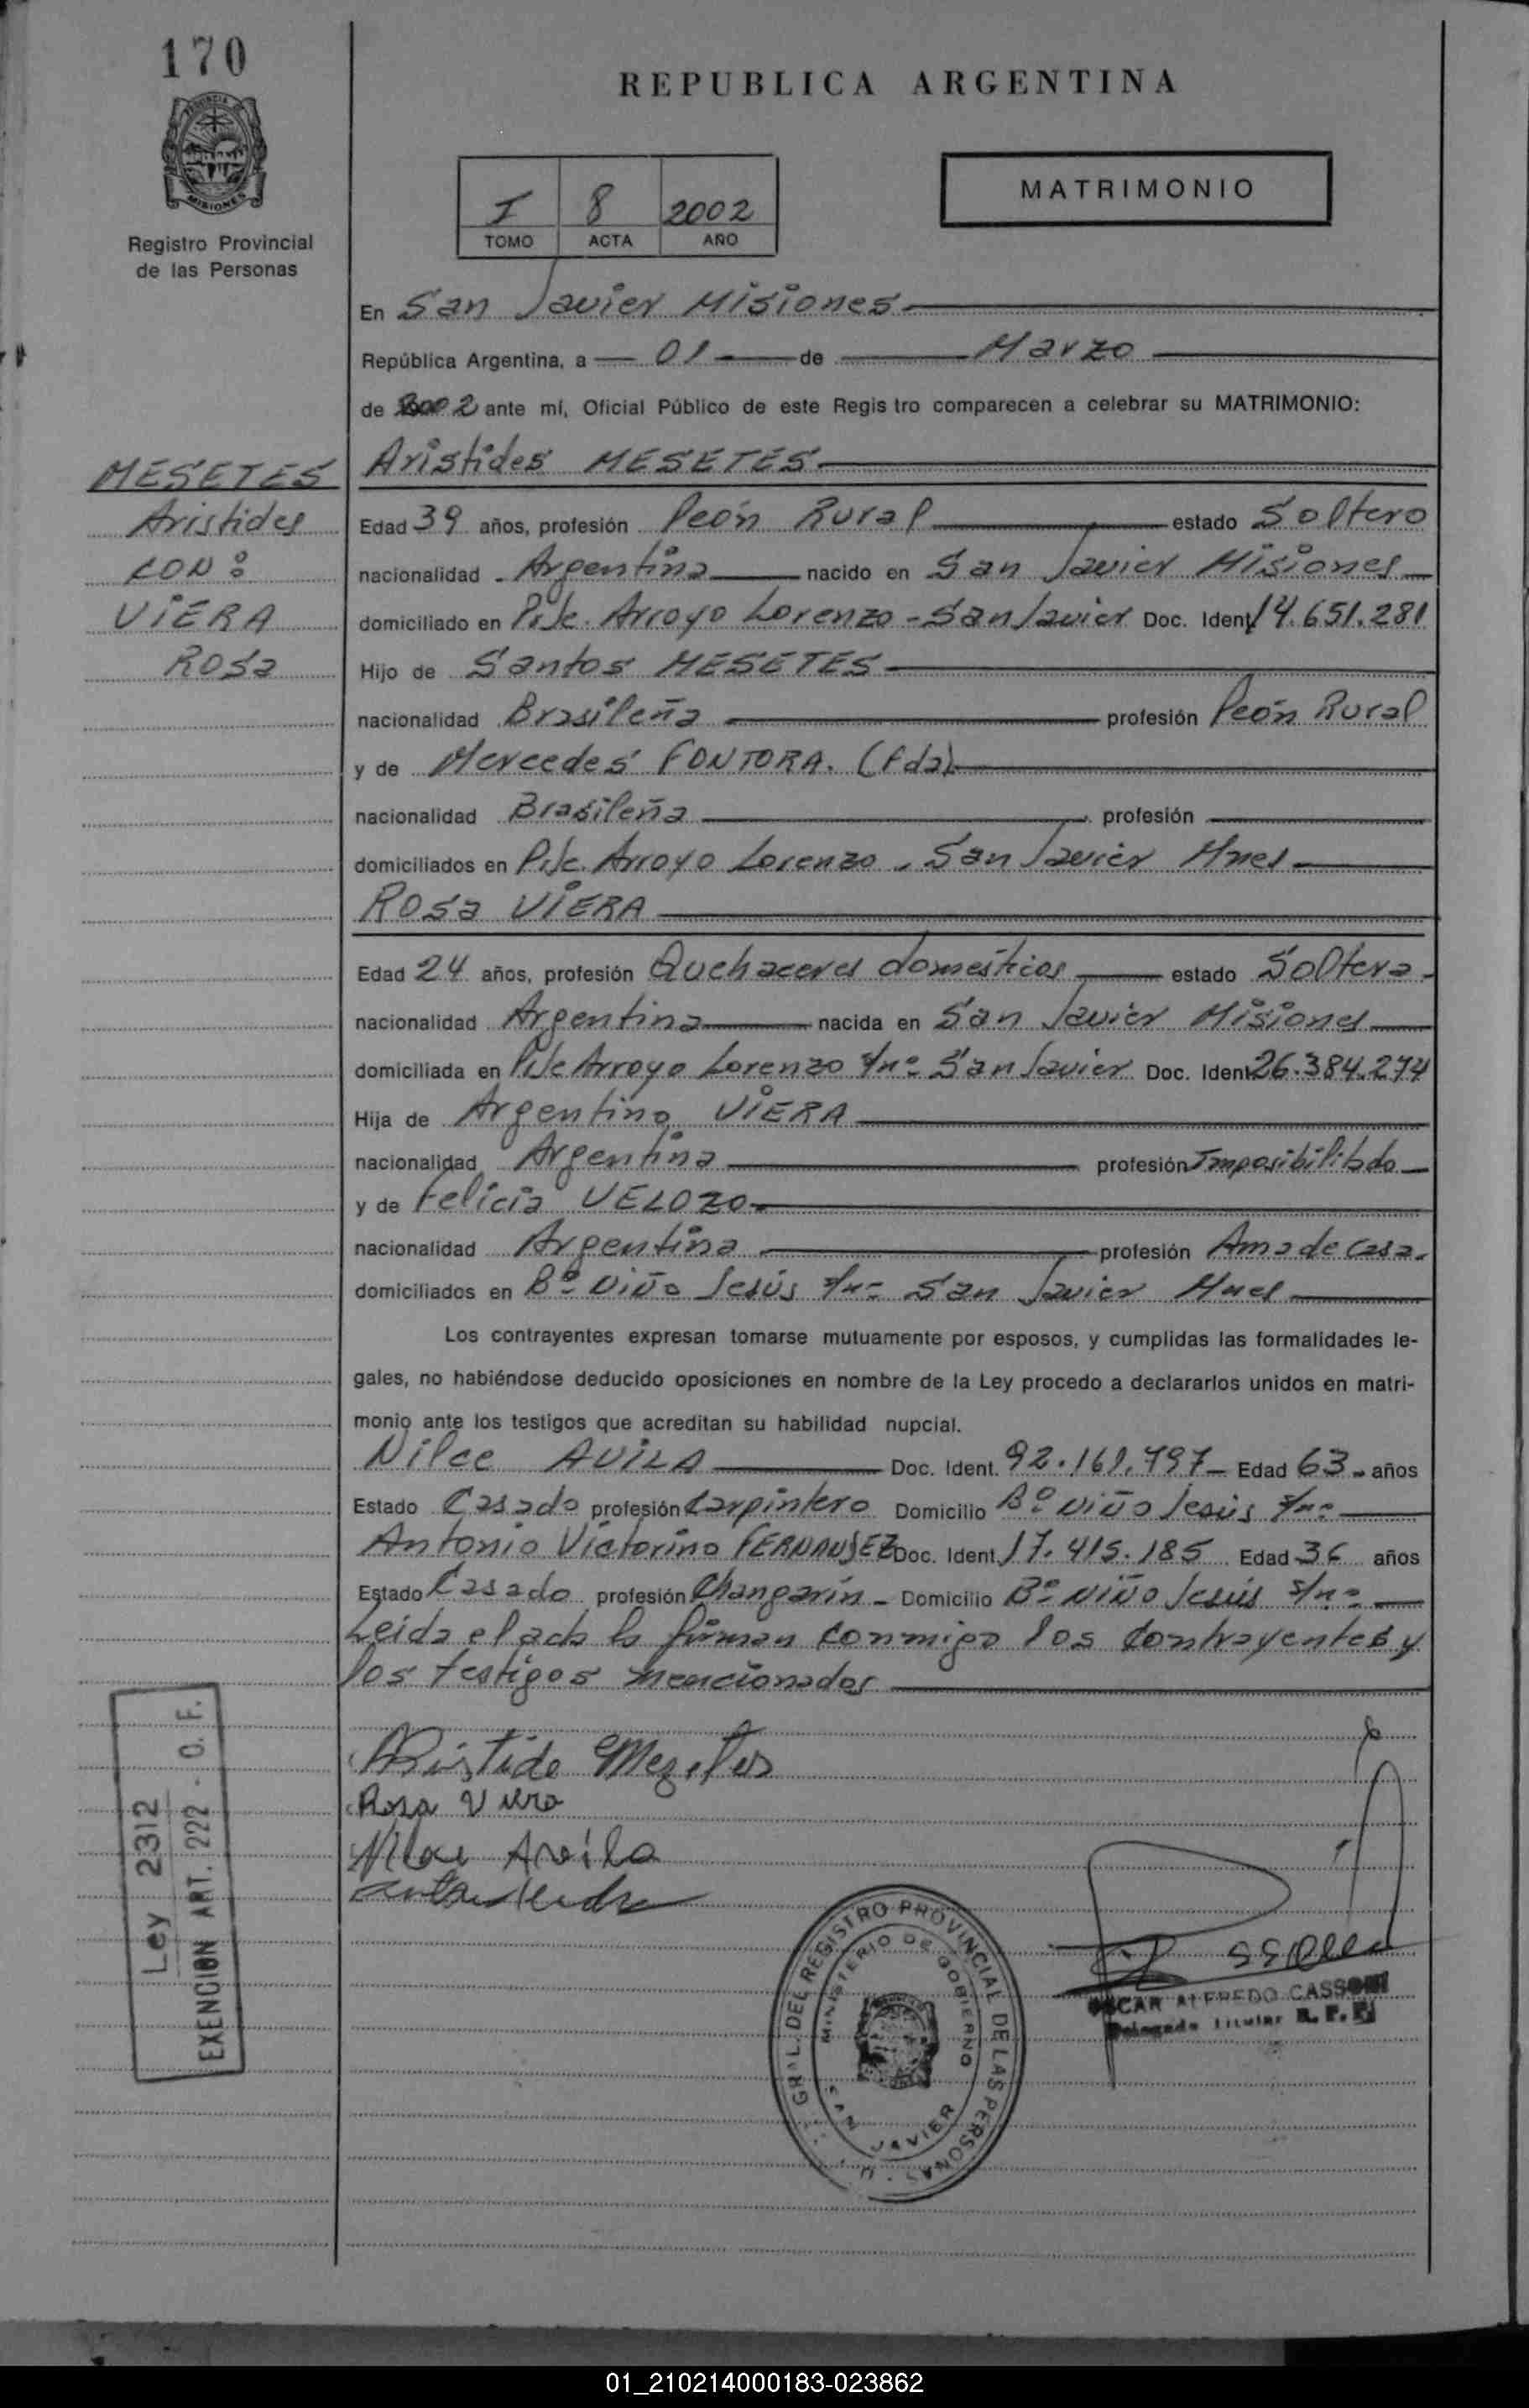 170
REPUBLICA ARGENTINA
MISIONES
I 8 2002
TOMO ACTA AÑO
MATRIMONIO
Registro Provincial
de las Personas
En San Javier Misiones
República Argentina, a 01 de Marzo
de 2002 ante mí, Oficial Público de este Regis tro comparecen a celebrar su MATRIMONIO:
Aristides MESETES
MESETES
Aristides
CON:
VIERA
Rosa
Edad 39 años, profesión Peón Rural estado Soltero
nacionalidad Argentina nacido en San Javier Misiones
domiciliado en Pje. Arroyo Lorenzo - San Javier Doc. Ident 14.651.281
Hijo de Santos MESETES
nacionalidad Brasileña profesión Peón Rural
y de Mercedes FONTORA. (fda)
nacionalidad Brasileña profesión
domiciliados en Pje. Arroyo Lorenzo - San Javier Mnes
Rosa VIERA
Edad 24 años, profesión Quehaceres domésticos estado Soltera
nacionalidad Argentina nacida en San Javier Misiones
domiciliada en Pje Arroyo Lorenzo s/nº San Javier Doc. Ident 26.384.274
Hija de Argentino VIERA
nacionalidad Argentina profesión Imposibilitado
y de Felicia VELOZO
nacionalidad Argentina profesión Ama de casa.
domiciliados en Bº Niño Jesús s/nº San Javier Mnes
Los contrayentes expresan tomarse mutuamente por esposos, y cumplidas las formalidades le-
gales, no habiéndose deducido oposiciones en nombre de la Ley procedo a declararlos unidos en matri-
monio ante los testigos que acreditan su habilidad nupcial.
Nilce AVILA Doc. Ident. 92.161.797 Edad 63 años
Estado Casado profesión Carpintero Domicilio Bº Niño Jesús s/nº
Antonio Victorino FERNANDEZ Doc. Ident. 17.415.185 Edad 36 años
Estado Casado profesión Changarín - Domicilio Bº Niño Jesús s/nº
Leida el acta la firman conmigo los contrayentes y
los testigos mencionados
Aristide Mezetes
Rosa Viera
Nilce Avila
Ley 2312
EXENCION ART. 222 - O. F.
GRAL. DEL REGISTRO PROVINCIAL DE LAS PERSONAS
MINISTERIO DE GOBIERNO
SAN JAVIER
OSCAR ALFREDO CASSONI
Delegado Titular R. P.
01_210214000183-023862